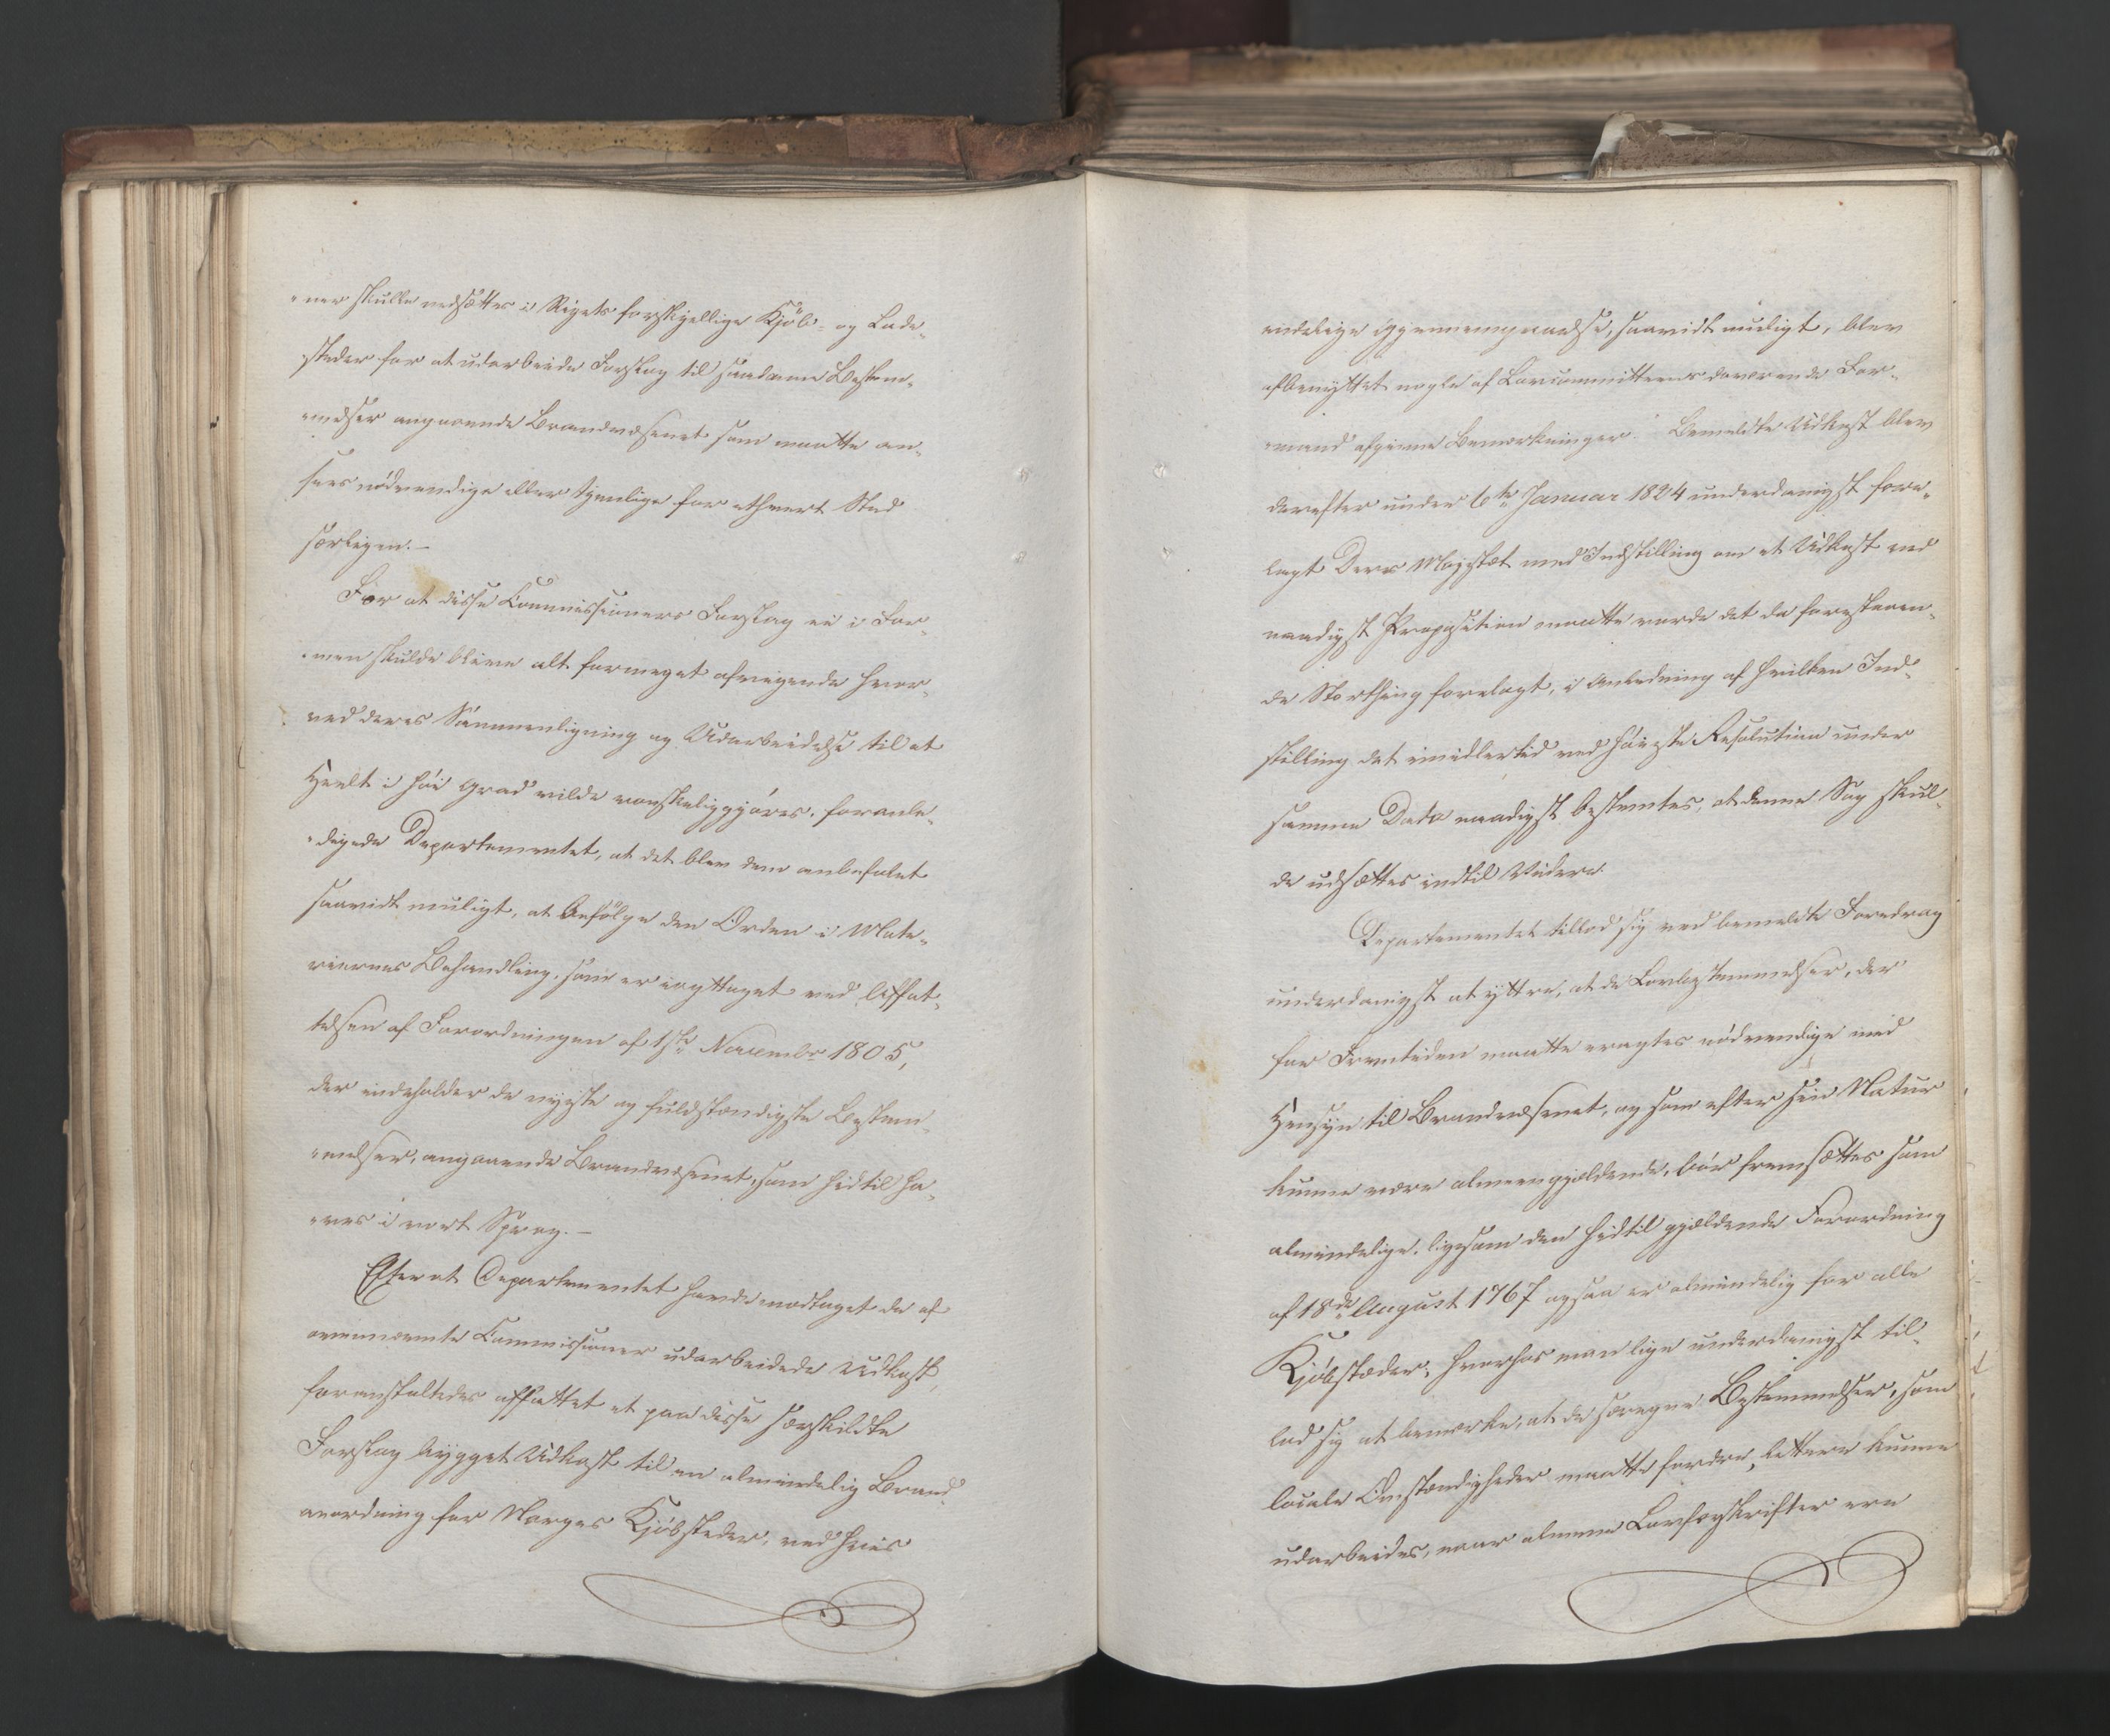 -ner skulle nedsættes i Rigets forskjellige Kjöb- og Lade-
steder for at udarbeide Forslag til saadanne Bestem-
-melser angaaende Brandvæsenet som maatte an-
sees nödvendige eller tjenlige for ethvert Sted
særligen.-
For at disse Commissioners Forslag ei i For-
-men skulde blive alt formeget afvigende hvor-
ved deres Sammenligning og Udarbeidelse til et
Heelt i höi Grad vilde vanskeliggjöres, foranle-
-digede Departementet, at det blev dem anbefalet
saavidt muligt, at befölge den Orden i Mate-
riernes Behandling, som er iagttaget ved Affat-
telsen af Forordningen af 1ste Novembr 1805,
der indeholder de nyeste og fuldstændigste Bestem-
-melser, angaaende Brandvæsenet, som hidtil ha-
-ves i vort Sprog.-
Efterat Departementet havde modtaget de af
ovennævnte Commissioner udarbeidede Udkast,
foranstaltedes affattet et paa disse særskildte
Forslag bygget Udkast til en almindelig Brand-
anordning for Norges Kjöbsteder, ved hvis
endelige Gjennemgaaelse, saavidt muligt, blev
afbenyttet nogle af Lovcommitteens daværende For-
-mand afgivne Bemærkninger. Bemeldte Udkast blev
derefter under 6te Januar 1824 underdanigst fore-
lagt Deres Majestæt med Indstilling om at Udkast ved
naadigst Proposition maatte vorde det da forestaaen-
de Storthing forelagt, i Anledning af hvilken Ind-
stilling det imidlertid ved höieste Resolution under
samme Dato naadigst bestemtes, at denne Sag skul-
de udsættes indtil Videre.
Departementet tillod sig ved bemeldte Foredrag
underdanigst at yttre, at de Lovbestemmelser, der
for Fremtiden maatte eragtes nödvendige med
Hensyn til Brandvæsenet, og som efter sin Natur
kunne være almeengjældende, bör fremsættes som
almindelige, ligesom den hidtil gjældende Forordning
af 18de August 1767 ogsaa er almindelig for alle
Kjöbstæder, hvorhos man lige underdanigst til-
lod sig at bemærke, at de særegne Bestemmelser, som
locale Omstændigheder maatte fordre, lettere kunne
udarbeides, naar almene Lovforskrifter ere